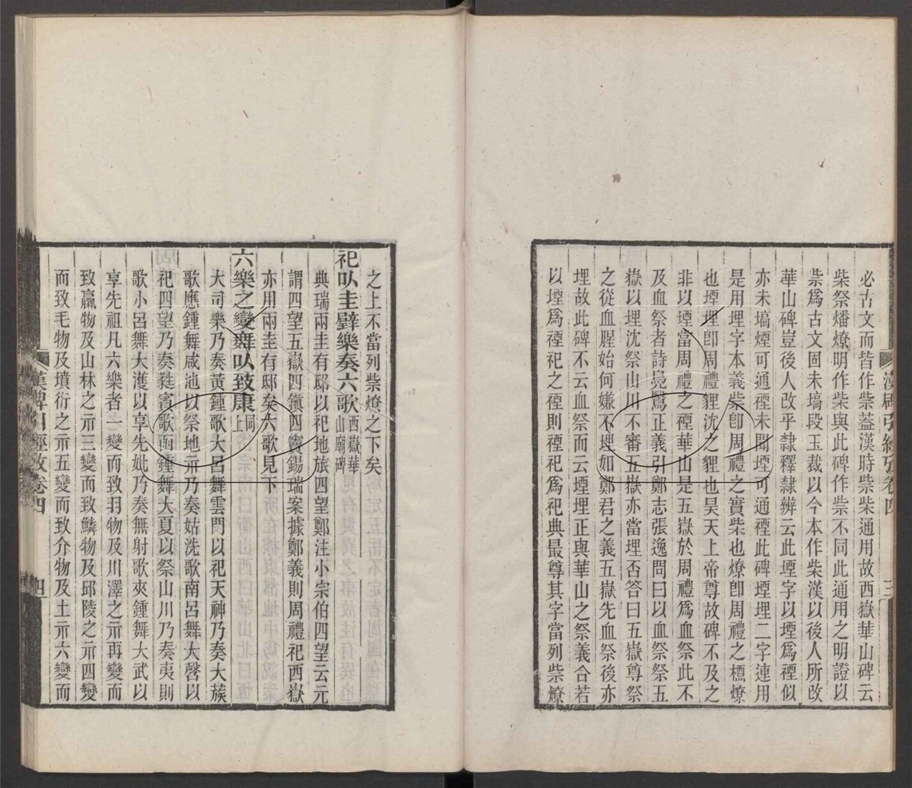 必古文而皆作祡葢漢時柴祡通用故西嶽華山碑云
柴祭燔燎明作柴與此碑作祡不同此通用之明證以
祡爲古文固未塙段玉裁以今本作柴漢以後人所改
華山碑豈後人改乎隸釋隸辨云此堙字以堙爲禋似
亦未塙煙可通禋未聞堙可通禋此碑堙埋二字連用
是用埋字本義祡卽周禮之實柴也燎卽周禮之槱燎
也堙埋卽周禮貍沈之貍也昊天上帝尊故碑不及之
非以堙當周禮之禋華山是五嶽於周禮爲血祭此不
及血祭者詩鳧鷖正義引鄭志張逸問曰以血祭祭五
嶽以埋沈祭山川不審五嶽亦當埋否答曰五嶽尊祭
之從血腥始何嫌不埋如鄭君之義五嶽先血祭後亦
埋故此碑不云血祭而云堙埋正與華山之祭義合若
以堙爲禋祀之禋則禋祀爲祀典最尊其字當列祡燎
漢碑引經攷卷四
三
之上不當列祡燎之下矣
祀㠯圭璧樂奏六歌西嶽華山廟碑
典瑞兩圭有邸以祀地旅四望鄭注小宗伯四望云元
謂四望五嶽四鎭四竇錫瑞案據鄭義則周禮祀西嶽
亦用兩圭有邸矣六歌見下
六樂之變舞㠯致康同上
大司樂乃奏黃鍾歌大呂舞雲門以祀天神乃奏大蔟
歌應鍾舞咸池以祭地示乃奏姑洗歌南呂舞大㲈以
祀四望乃奏蕤賓歌函鍾舞大夏以祭山川乃奏夷則
歌小呂舞大濩以享先妣乃奏無射歌夾鍾舞大武以
享先祖凡六樂者一變而致羽物及川澤之示再變而
致臝物及山林之示三變而致鱗物及邱陵之示四變
而致毛物及墳衍之示五變而致介物及土示六變而
漢碑引經攷卷四
四